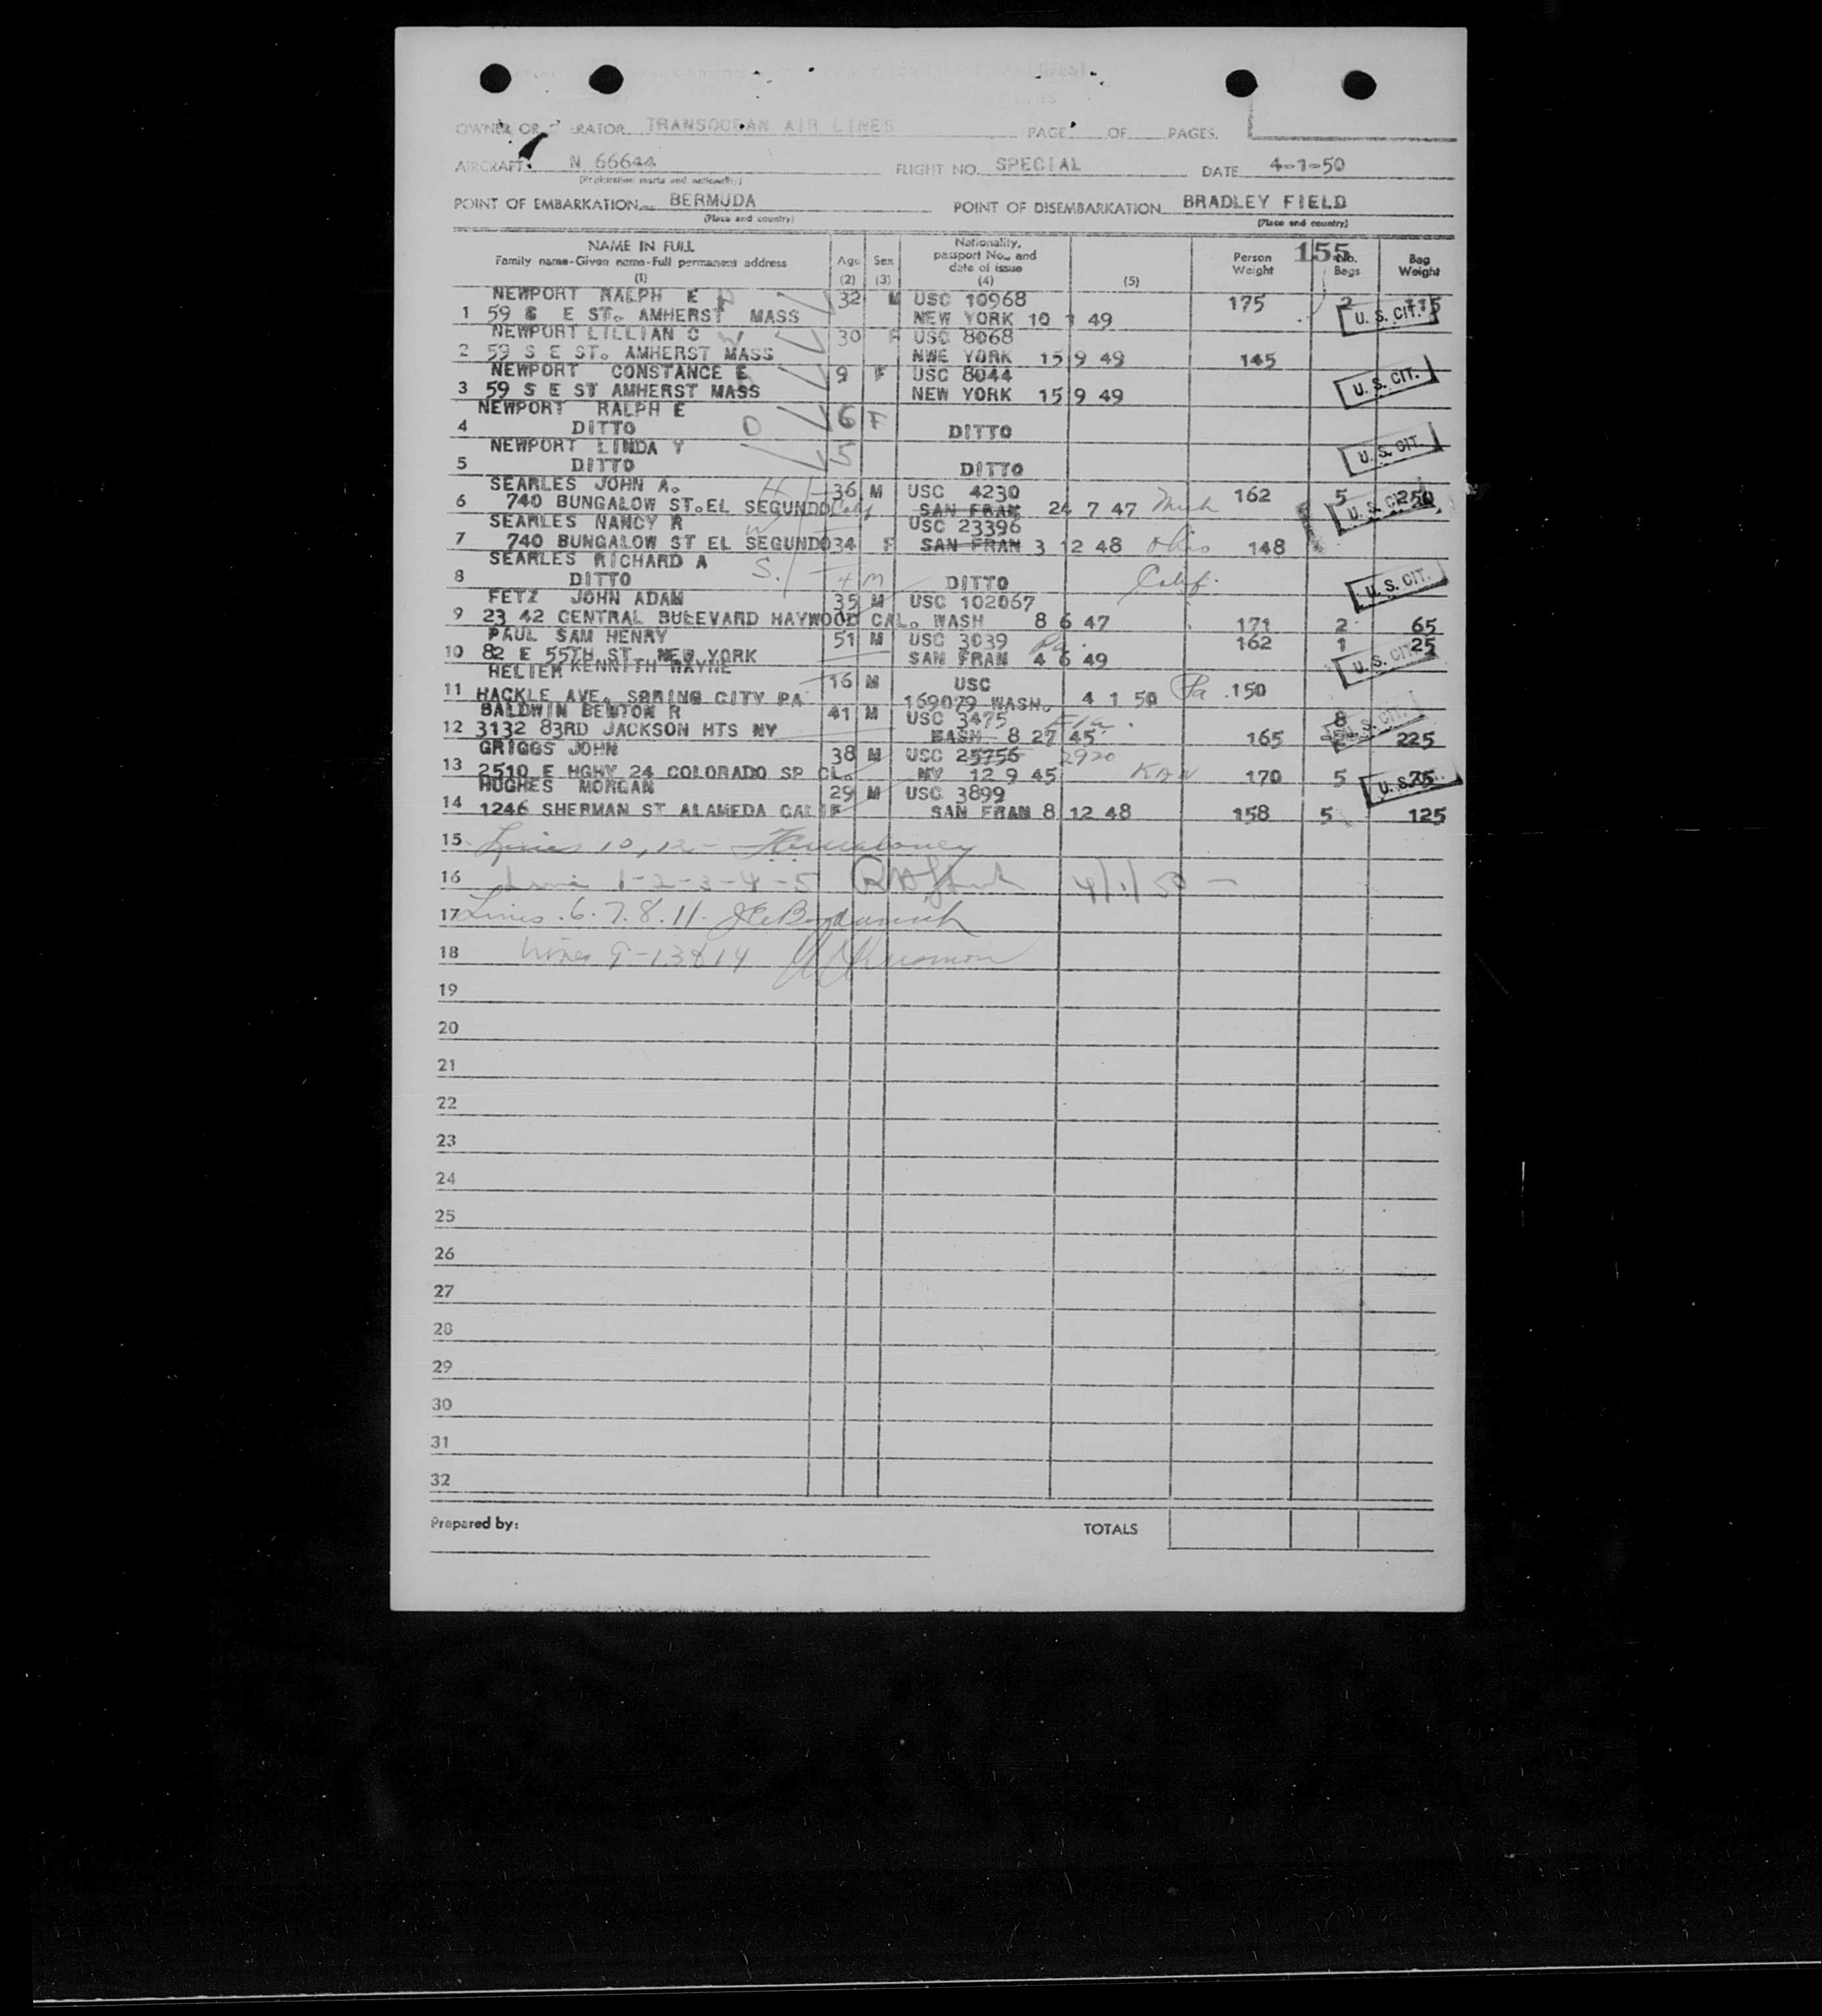 OWNER OR ERATOR TRANSOCEAN AIR LINES PAGE OF PAGES.
AIRCRAFT N 66644 FLIGHT NO. SPECIAL DATE 4-1-50
(Registration marks and nationality)
POINT OF EMBARKATION BERMUDA POINT OF DISEMBARKATION BRADLEY FIELD
(Place and country) (Place and country)
NAME IN FULL
Family name-Given name-Full permanent address
(1)
Age
(2)
Sex
(3)
Nationality,
passport No., and
date of issue
(4)
(5)
Person
Weight
155
No.
Bags
Bag
Weight
NEWPORT RALPH E 32 M USC 10968 175 2 115
1 59 S E ST. AMHERST MASS NEW YORK 10 1 49 U. S. CIT.
NEWPORT LILLIAN C W 30 F USC 8068
2 59 S E ST. AMHERST MASS NWE YORK 15 9 49 145
NEWPORT CONSTANCE E 9 F USC 8044
3 59 S E ST AMHERST MASS NEW YORK 15 9 49 U. S. CIT.
NEWPORT RALPH E 6 F
4 DITTO D DITTO
NEWPORT LINDA Y 5 U. S. CIT.
5 DITTO DITTO
SEARLES JOHN A. H 36 M USC 4230 162 5 250
6 740 BUNGALOW ST. EL SEGUNDO Calf SAN FRAN 24 7 47 Mich U. S. CIT.
SEARLES NANCY R W USC 23396
7 740 BUNGALOW ST EL SEGUNDO 34 F SAN FRAN 3 12 48 Ohio 148
SEARLES RICHARD A S.
8 DITTO 4 M DITTO Calif. U. S. CIT.
FETZ JOHN ADAM 35 M USC 102067
9 23 42 CENTRAL BULEVARD HAYWOOD CAL. WASH 8 6 47 171 2 65
PAUL SAM HENRY 51 M USC 3039 Pa. 162 1 25
10 82 E 55TH ST NEW YORK SAN FRAN 4 6 49 U. S. CIT.
HELIER KENNITH WAYNE 16 M USC
11 HACKLE AVE. SPRING CITY PA 169079 WASH. 4 1 50 Pa 150
BALDWIN BENTON R 41 M USC 3475 Fla. 8 U. S. CIT.
12 3132 83RD JACKSON HTS NY WASH 8 27 45 165 225
GRIGGS JOHN 38 M USC 25756 2920
13 2510 E HGHY 24 COLORADO SP CL. NY 12 9 45 KAN 170 5 75 U. S. CIT.
HUGHES MORGAN 29 M USC 3899
14 1246 SHERMAN ST ALAMEDA CALIF SAN FRAN 8 12 48 158 5 125
15 Lines 10, 12 -
16 Line 1-2-3-4-5 4/1/50 -
17 Lines. 6. 7. 8. 11.
18 Lines 9-13&14
19
20
21
22
23
24
25
26
27
28
29
30
31
32
Prepared by: TOTALS